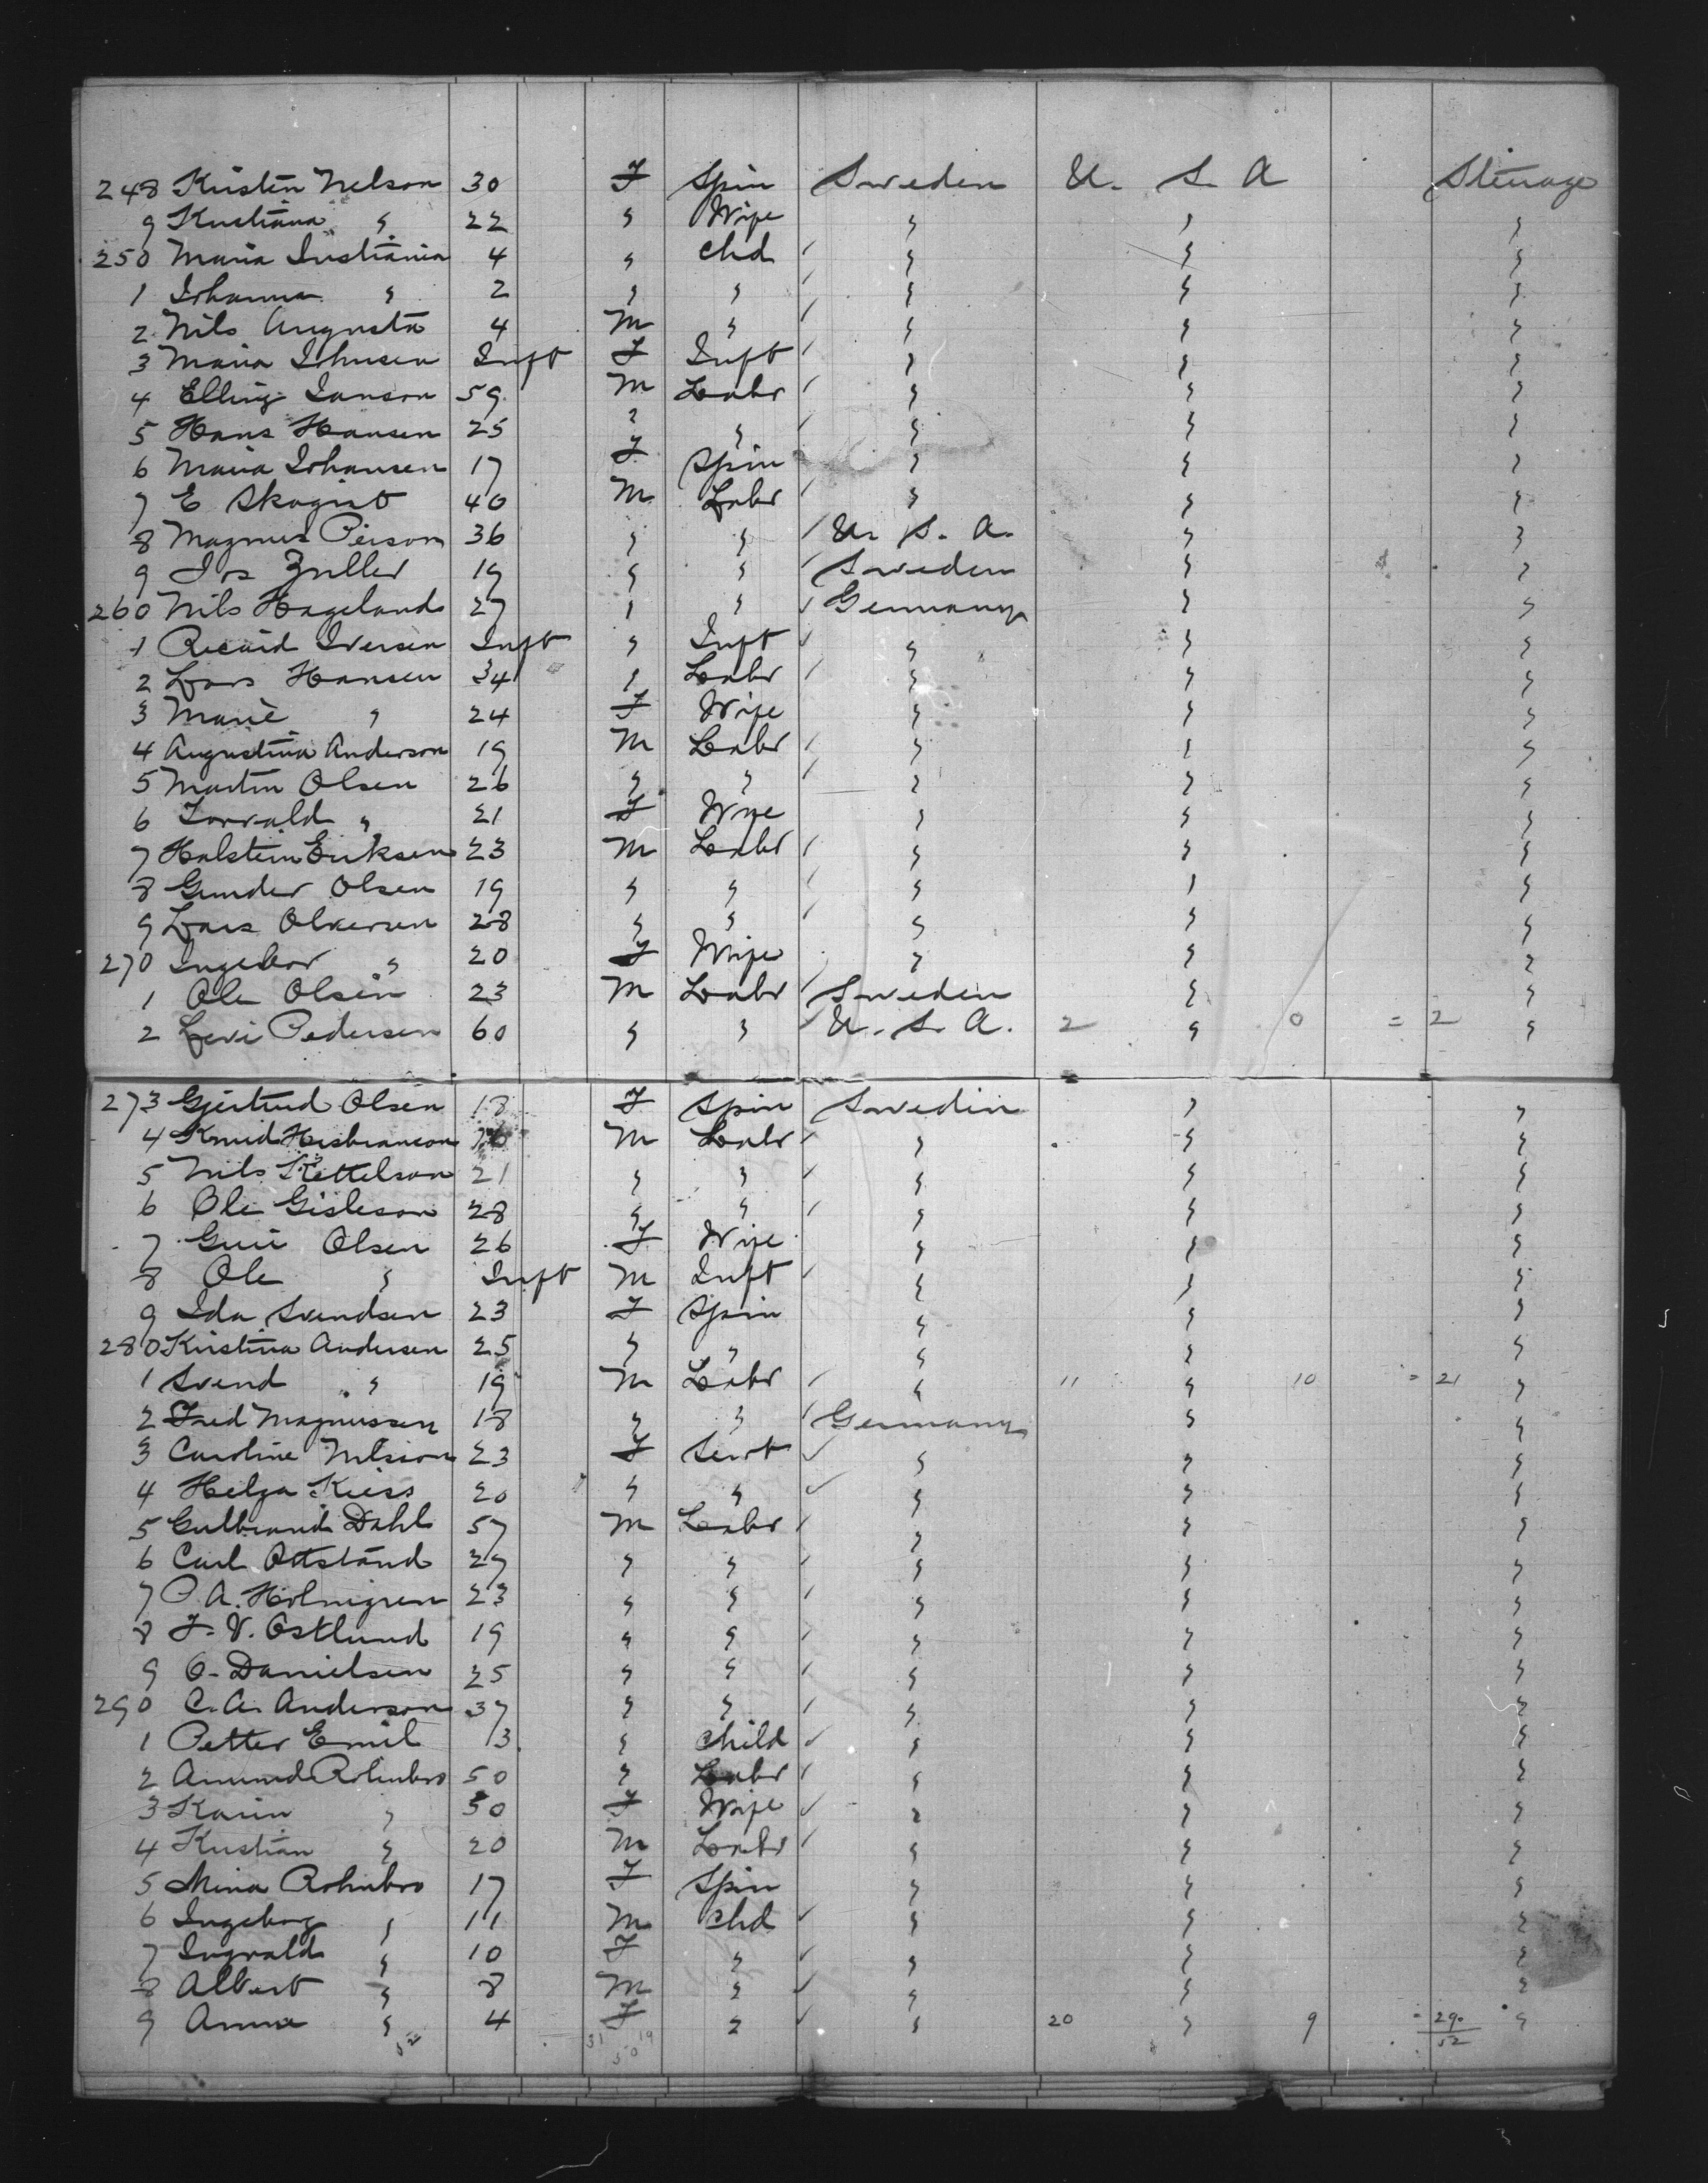 248 Kristen Nelson 30 F Spin Sweden U. S. A Steerage
9 Kristiana " 22 " Wife " " "
250 Maria Iustiania 4 " chd " " "
1 Johanna " 2 " " " " "
2 Nils Augusta 4 M " " " "
3 Maria Johnsen Inft F Inft " " "
4 Elling Janson 59 M Labr " " "
5 Hans Hansen 25 " " " " "
6 Maria Johansen 17 F Spin " " "
7 E Skogist 40 M Labr " " "
8 Magnus Peirson 36 " " U. S. A. " "
9 Jos Zuller 19 " " Sweden " "
260 Nils Hagelands 27 " " Germany " "
1 Recard Iversen Inft " Inft " " "
2 Lars Hansen 34 " Labr " " "
3 Marie " 24 F Wife " " "
4 Augustina Anderson 19 M Labr " " "
5 Martin Olsen 26 " " " " "
6 Torvald " 21 F Wife " " "
7 Halstein Eriksen 23 M Labr " " "
8 Gunder Olsen 19 " " " " "
9 Lars Olversen 28 " " " " "
270 Ingebor " 20 F Wife " " "
1 Ole Olsen 23 M Labr Sweden " "
2 Levi Pedersen 60 " " U. S. A. 2 " 0 = 2 "
273 Gjertrud Olsen 18 F Spin Sweden " "
4 Knud Hisbranson M Labr " " "
5 Nils Kettelson 21 " " " " "
6 Ole Gisleson 28 " " " " "
7 Guri Olsen 26 F Wife " " "
8 Ole " Inft M Inft " " "
9 Ida Svendsen 23 F Spin " " "
280 Kristina Andersen 25 " " " " "
1 Svend " 19 M Labr " 11 " 10 = 21 "
2 Fred Magnussen 18 " " Germany " "
3 Caroline Nilsson 23 F Servt " " "
4 Helga Kiess 20 " " " " "
5 Gulbrand Dahl 57 M Labr " " "
6 Carl Attstand 27 " " " " "
7 P. A. Holmgren 23 " " " " "
8 F. V. Ostlund 19 " " " " "
9 O. Danielsen 25 " " " " "
290 C. A. Anderson 37 " " " " "
1 Petter Emil 13 " child " " "
2 Amund Rohnbro 50 " Labr " " "
3 Karin " 50 F Wife " " "
4 Kristian " 20 M Labr " " "
5 Mina Rohnbro 17 F Spin " " "
6 Ingeborg " 11 M chd " " "
7 Ingvald " 10 F " " " "
8 Albert " 8 M " " " "
9 Anna " 4 F " " 20 " 9 = 29 "
52 31 19 50 52